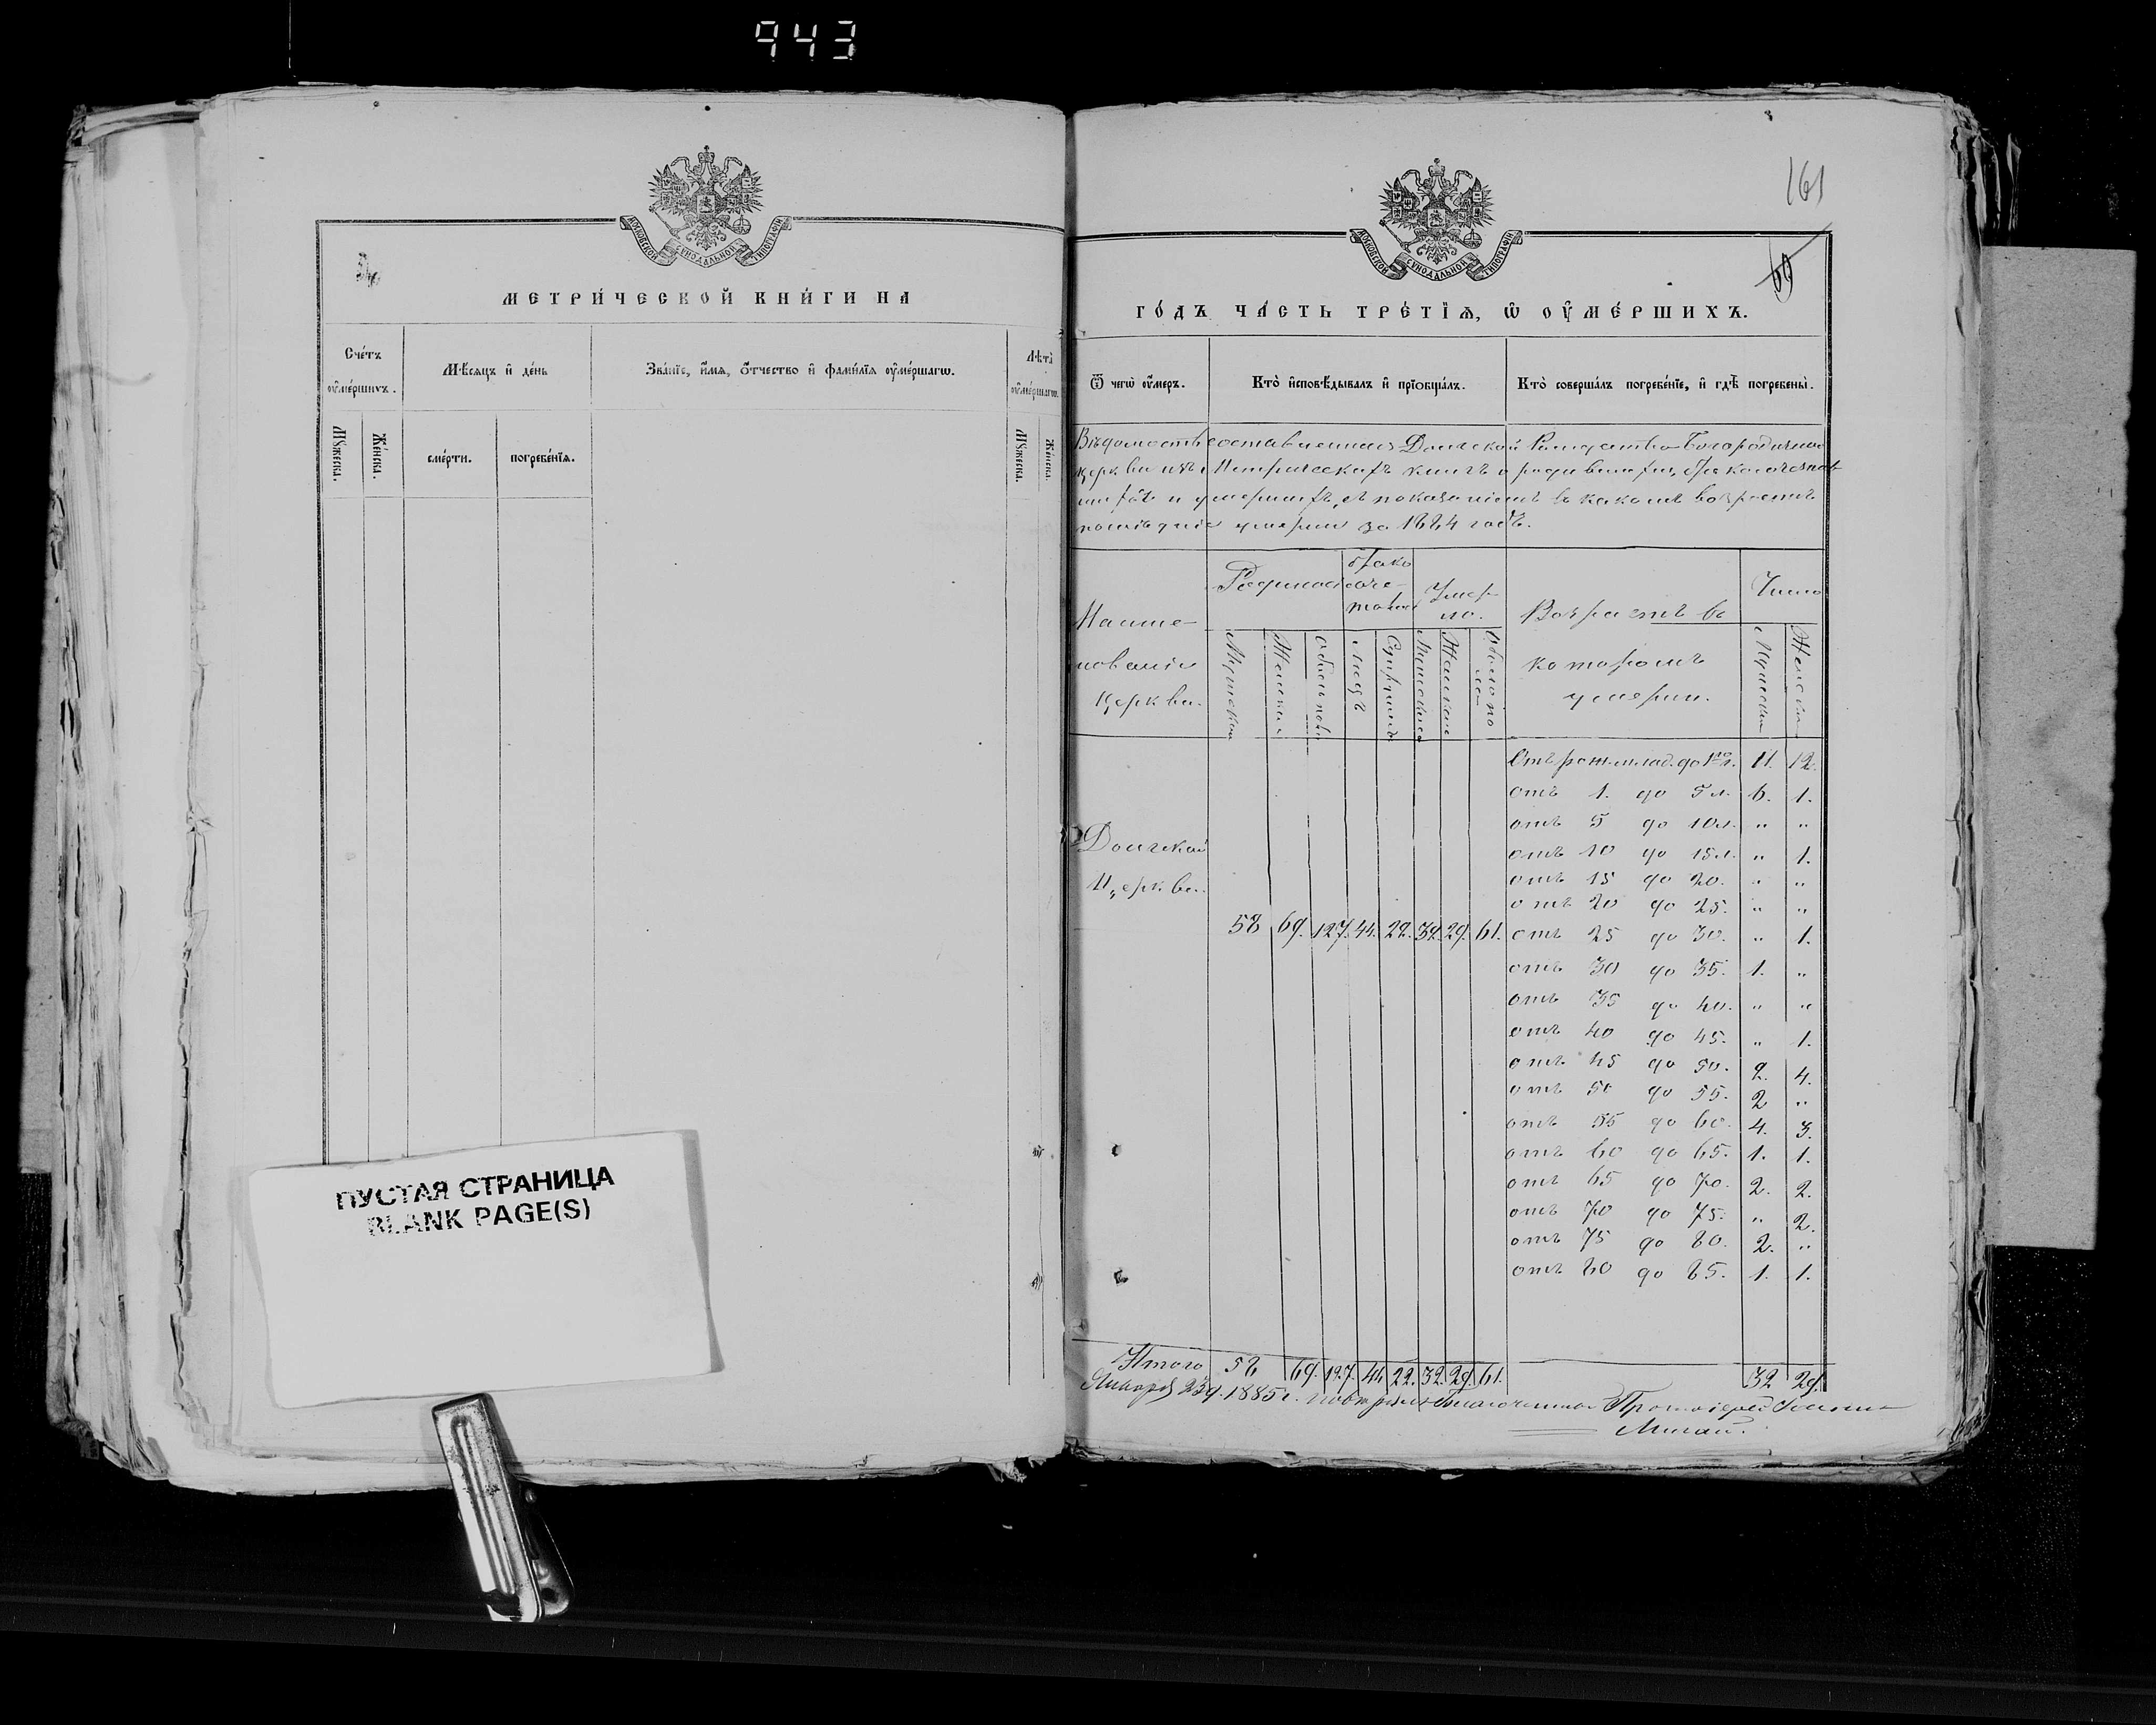 943
МОСКОВСКОЙ СѴНОДАЛЬНОЙ ТИПОГРАФІИ
МЕТРИ́ЧЕСКОЙ КНИ́ГИ НА
Сче́тъ ᲂу҆ме́ршихъ.
Мѣ́сяцъ и҆ де́нь
Зва́нїе, и҆́мя, ѻ҆́тчество и҆ фами́лїя ᲂу҆ме́ршагѡ.
Лѣ́та ᲂу҆ме́ршагѡ.
Мꙋ́жеска.
Же́нска.
сме́рти.
погребе́нїя.
Мꙋ́жеска.
Же́нска.
ПУСТАЯ СТРАНИЦА
BLANK PAGE(S)
161
МОСКОВСКОЙ СѴНОДАЛЬНОЙ ТИПОГРАФІИ
60
ГО́ДЪ ЧА́СТЬ ТРЕ́ТЇѦ, Ѡ҆ ОУ҆МЕ́РШИХЪ.
Ѿ чегѡ̀ ᲂу҆́меръ.
Кто̀ и҆сповѣ́дывалъ и҆ прїобща́лъ.
Кто̀ соверша́лъ погребе́нїе, и҆ гдѣ̀ погребены̀.
Вѣдомость составленная Рождество-Богородичной
церкви изъ Метрическихъ книгъ о родившихся, бракосочетав
шихся и умершихъ, съ показаніемъ въ какомъ возрастѣ
послѣдніе умерли за 1884 годъ.
Наиме-
нованіе
церкви.
Родилось
Брако
соче-
талось
Умер-
ло.
Возрастъ въ
которомъ
умерли.
Число
Мужескаго
Женскаго
Обоего пола
Лицъ
Супружествъ
Мужескаго
Женскаго
Обоего по
ла
Мужескаго
Женскаго
Отъ рож. млад. до 1го г. 11. 12.
отъ 1. до 5 л. 6. 1.
отъ 5 до 10 л. " "
отъ 10 до 15 л. " 1.
отъ 15 до 20. " "
отъ 20 до 25. " "
церкви.
58 69. 127. 44. 22. 32. 29. 61. отъ 25 до 30. " 1.
отъ 30 до 35. 1. "
отъ 35 до 40. " "
отъ 40 до 45. " 1.
отъ 45 до 50. 2. 4.
отъ 50 до 55. 2 "
отъ 55 до 60. 4. 3.
отъ 60 до 65. 1. 1.
отъ 65 до 70. 2. 2.
отъ 70 до 75. " 2.
отъ 75 до 80. 2. "
отъ 80 до 85. 1. 1.
Итого 58 69. 127. 44. 22. 32. 29. 61. 32 29.
Января 23 д. 1885 г. Благочинный Протоіерей